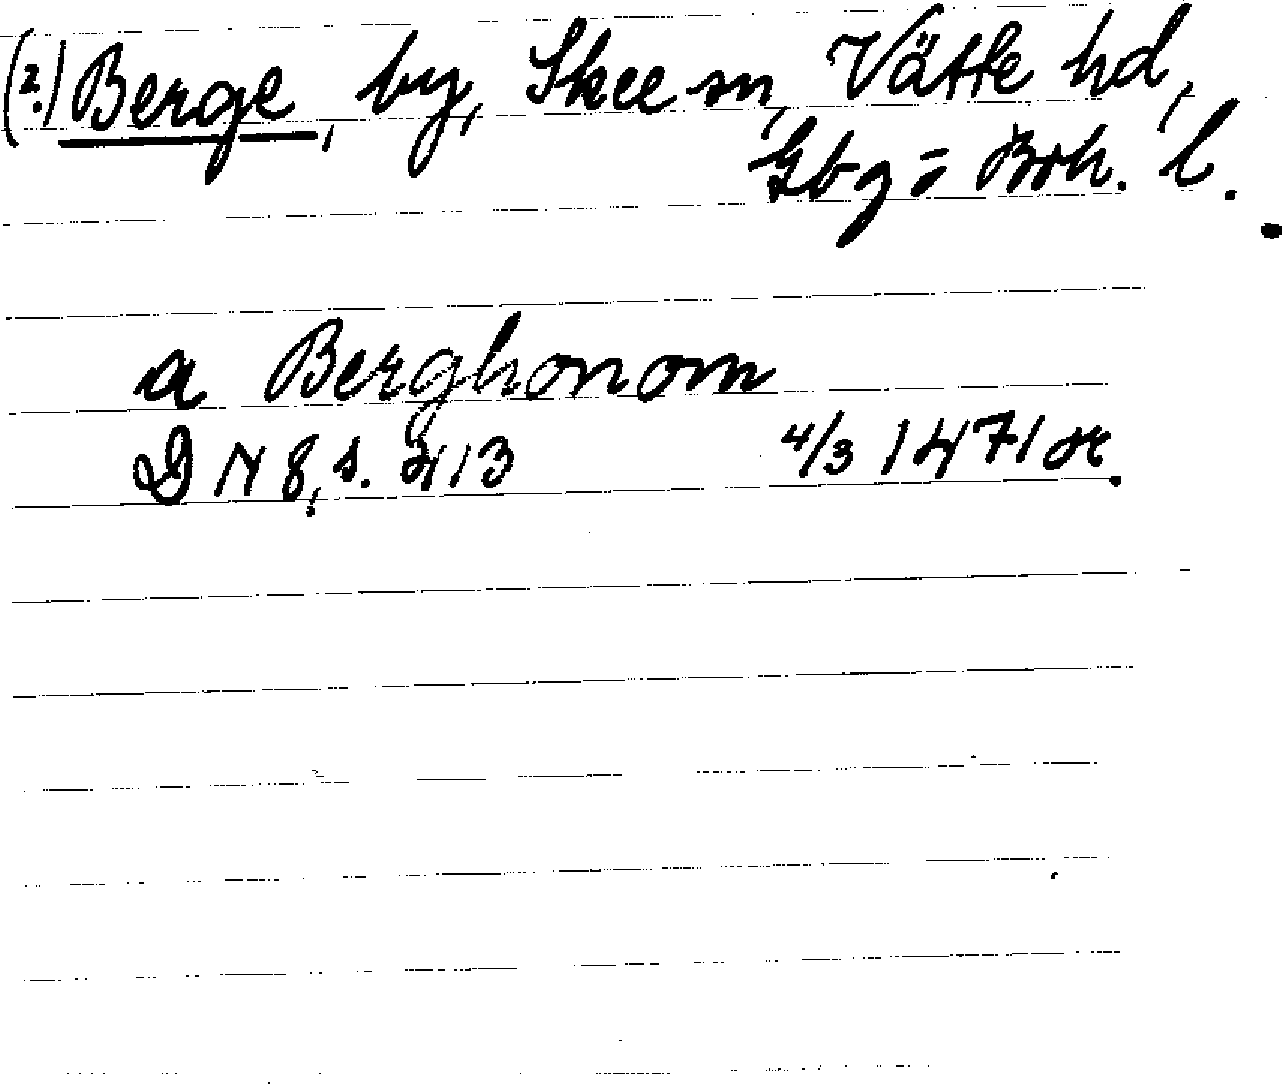 (2.) Berge, by, Skee sn, Vätte hd,
Gbg = Boh. l.
a Berghonom
DN 8, s. 413 4/3 1471 or.